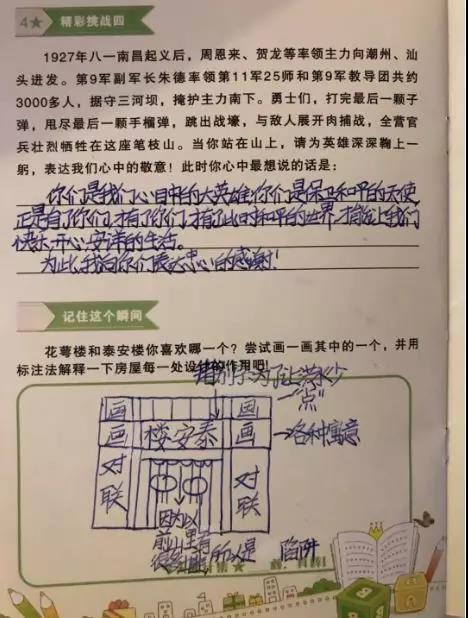 4★ 精彩挑战四
1927年八一南昌起义后，周恩来、贺龙等率领主力向潮州、汕
头进发。第9军副军长朱德率领第11军25师和第9军教导团共约
3000多人，据守三河坝，掩护主力南下。勇士们，打完最后一颗子
弹，甩尽最后一颗手榴弹，跳出战壕，与敌人展开肉捕战，全营官
兵壮烈牺牲在这座笔枝山。当你站在山上，请为英雄深深鞠上一
躬，表达我们心中的敬意！此时你心中最想说的话是：
你们是我们心目中的大英雄，你们是保卫和平的天使，
正是有了你们，才有了你们，才有了此时和平的世界，才能让我们
快乐、开心、安详的生活。
为此，我向你们表达衷心的感谢！
记住这个瞬间
花萼楼和泰安楼你喜欢哪一个？尝试画一画其中的一个，并用
标注法解释一下房屋每一处设计的作用吧！
错别字：为了让洪水少一“点”
画 画
画 楼安泰 画
各种寓意
对联 对联
因为以
前山里有
很多 所以是 陷阱